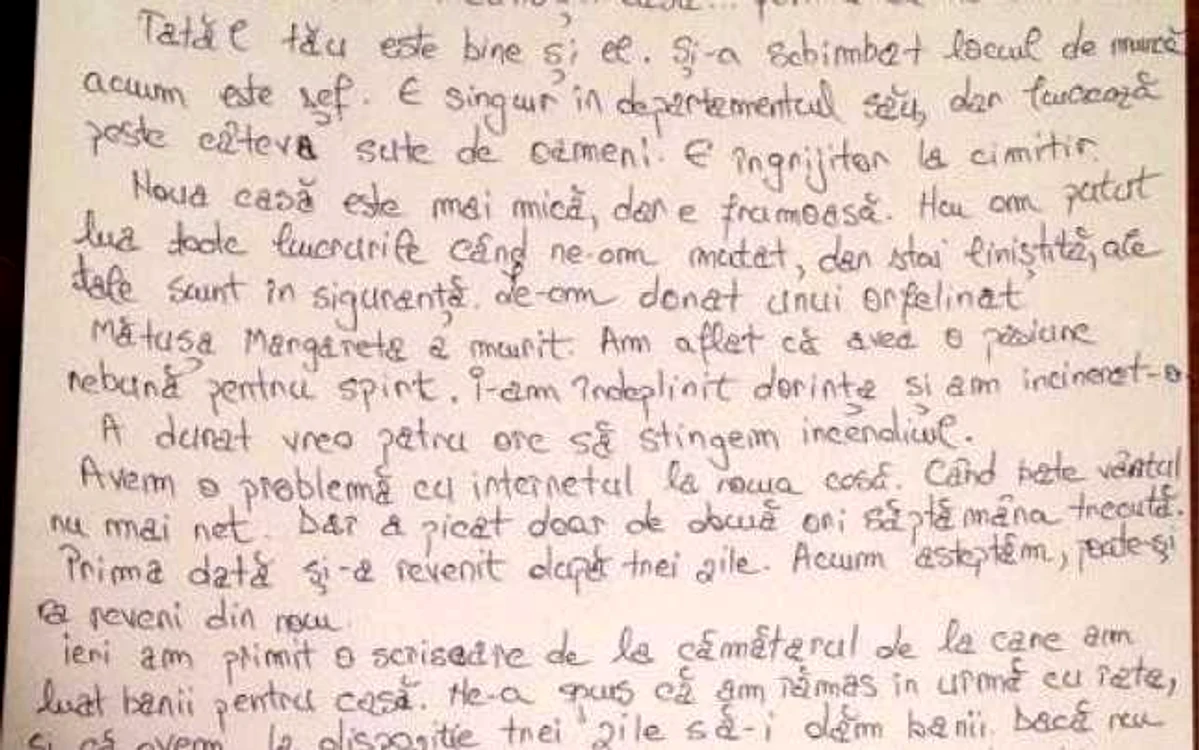 Tatăl tău este bine și el. Și-a schimbat locul de muncă
acum este șef. E singur în departamentul său, dar lucrează
peste câteva sute de oameni. E îngrijitor la cimitir.
Noua casă este mai mică, dar e frumoasă. Nu am putut
lua toate lucrurile când ne-am mutat, dar stai liniștită, ale
tale sunt în siguranță. Le-am donat unui orfelinat
Mătușa Margareta a murit. Am aflat că avea o pasiune
nebună pentru spirt. I-am îndeplinit dorința și am incinerat-o
A durat vreo patru ore să stingem incendiul.
Avem o problemă cu internetul la noua casă. Când bate vântul
nu mai net. Dar a picat doar de două ori săptămâna trecută.
Prima dată și-a revenit după trei zile. Acum așteptăm, poate-și
a reveni din nou.
ieri am primit o scrisoare de la cămătarul de la care am
luat banii pentru casă. Ne-a spus că am rămas în urmă cu rate,
și că avem la dispoziție trei zile să-i dăm banii. Dacă nu